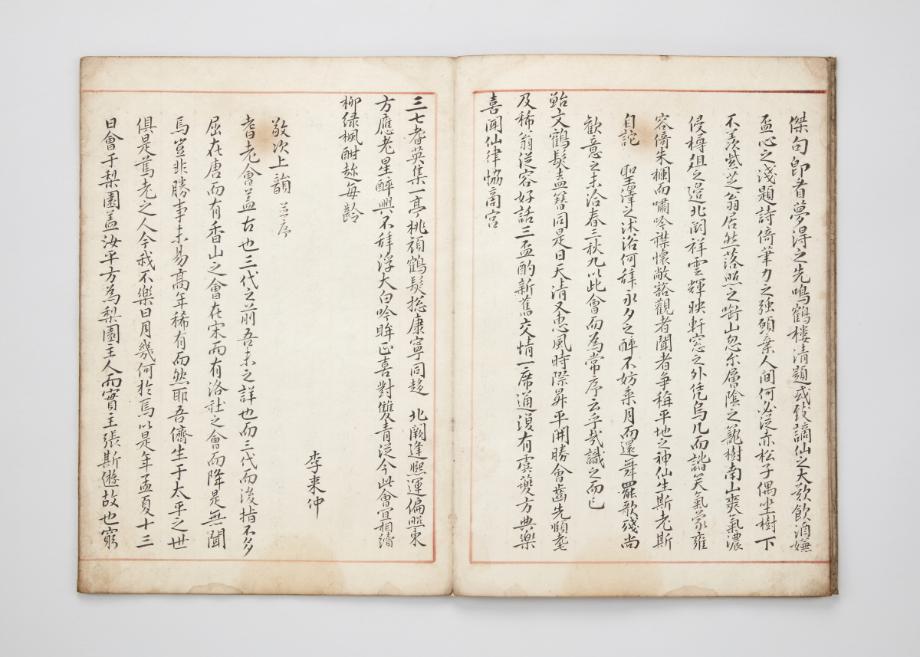 傑句郎看夢得之先鳴鶴樓清題或伐謫仙之大歌飲酒嫌
盃心之淺題詩倚筆力之強頋棄人間何必從赤松子偶坐樹下
不羨紫芝翁居然落照之啣山忽尒層陰之籠樹南山爽氣濃
侵樽俎之邊北闕祥雲輝映軒窓之外凭烏几而諧笑氣象雍
容倚朱欄而嘯吟襟懷敞豁觀者聞者爭稱平地之神仙生斯老斯
自詫 聖澤之沐浴何辞永夕之醉不妨乘月而還舞罷歌殘尚
歡意之未洽春三秋九以此會而為常序云乎哉識之而已
鮐文鶴髮盍簪同是日天清又惠風時際昇平開勝會齒先順耋
及稀翁從容好話三盃酌新舊交情一席通須有雲夔方典樂
喜聞仙律協商宮
三七耆英集一亭桃顏鶴髮捴康寧同趍 北闕逢熙運偏照東
方應老星醉興不辞浮大白吟眸正喜對雙青從今此會宜相續
柳綠楓酣趂每齡
李来仲
敬次上韻 並序
耆老會盖古也三代之前吾未之詳也而三代而後指不多
屈在唐而有香山之會在宋而有洛社之會而降是無聞
焉豈非勝事未易高年稀有而然耶吾儕生于太平之世
俱是篤老之人今我不樂日月幾何於焉以是年孟夏十三
日會于梨園盖汝平方為梨園主人而實主張斯遊故也窮